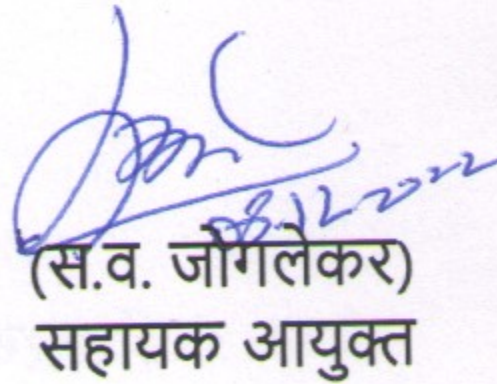 08.12.2022
(स.व. जोगलेकर)
सहायक आयुक्त